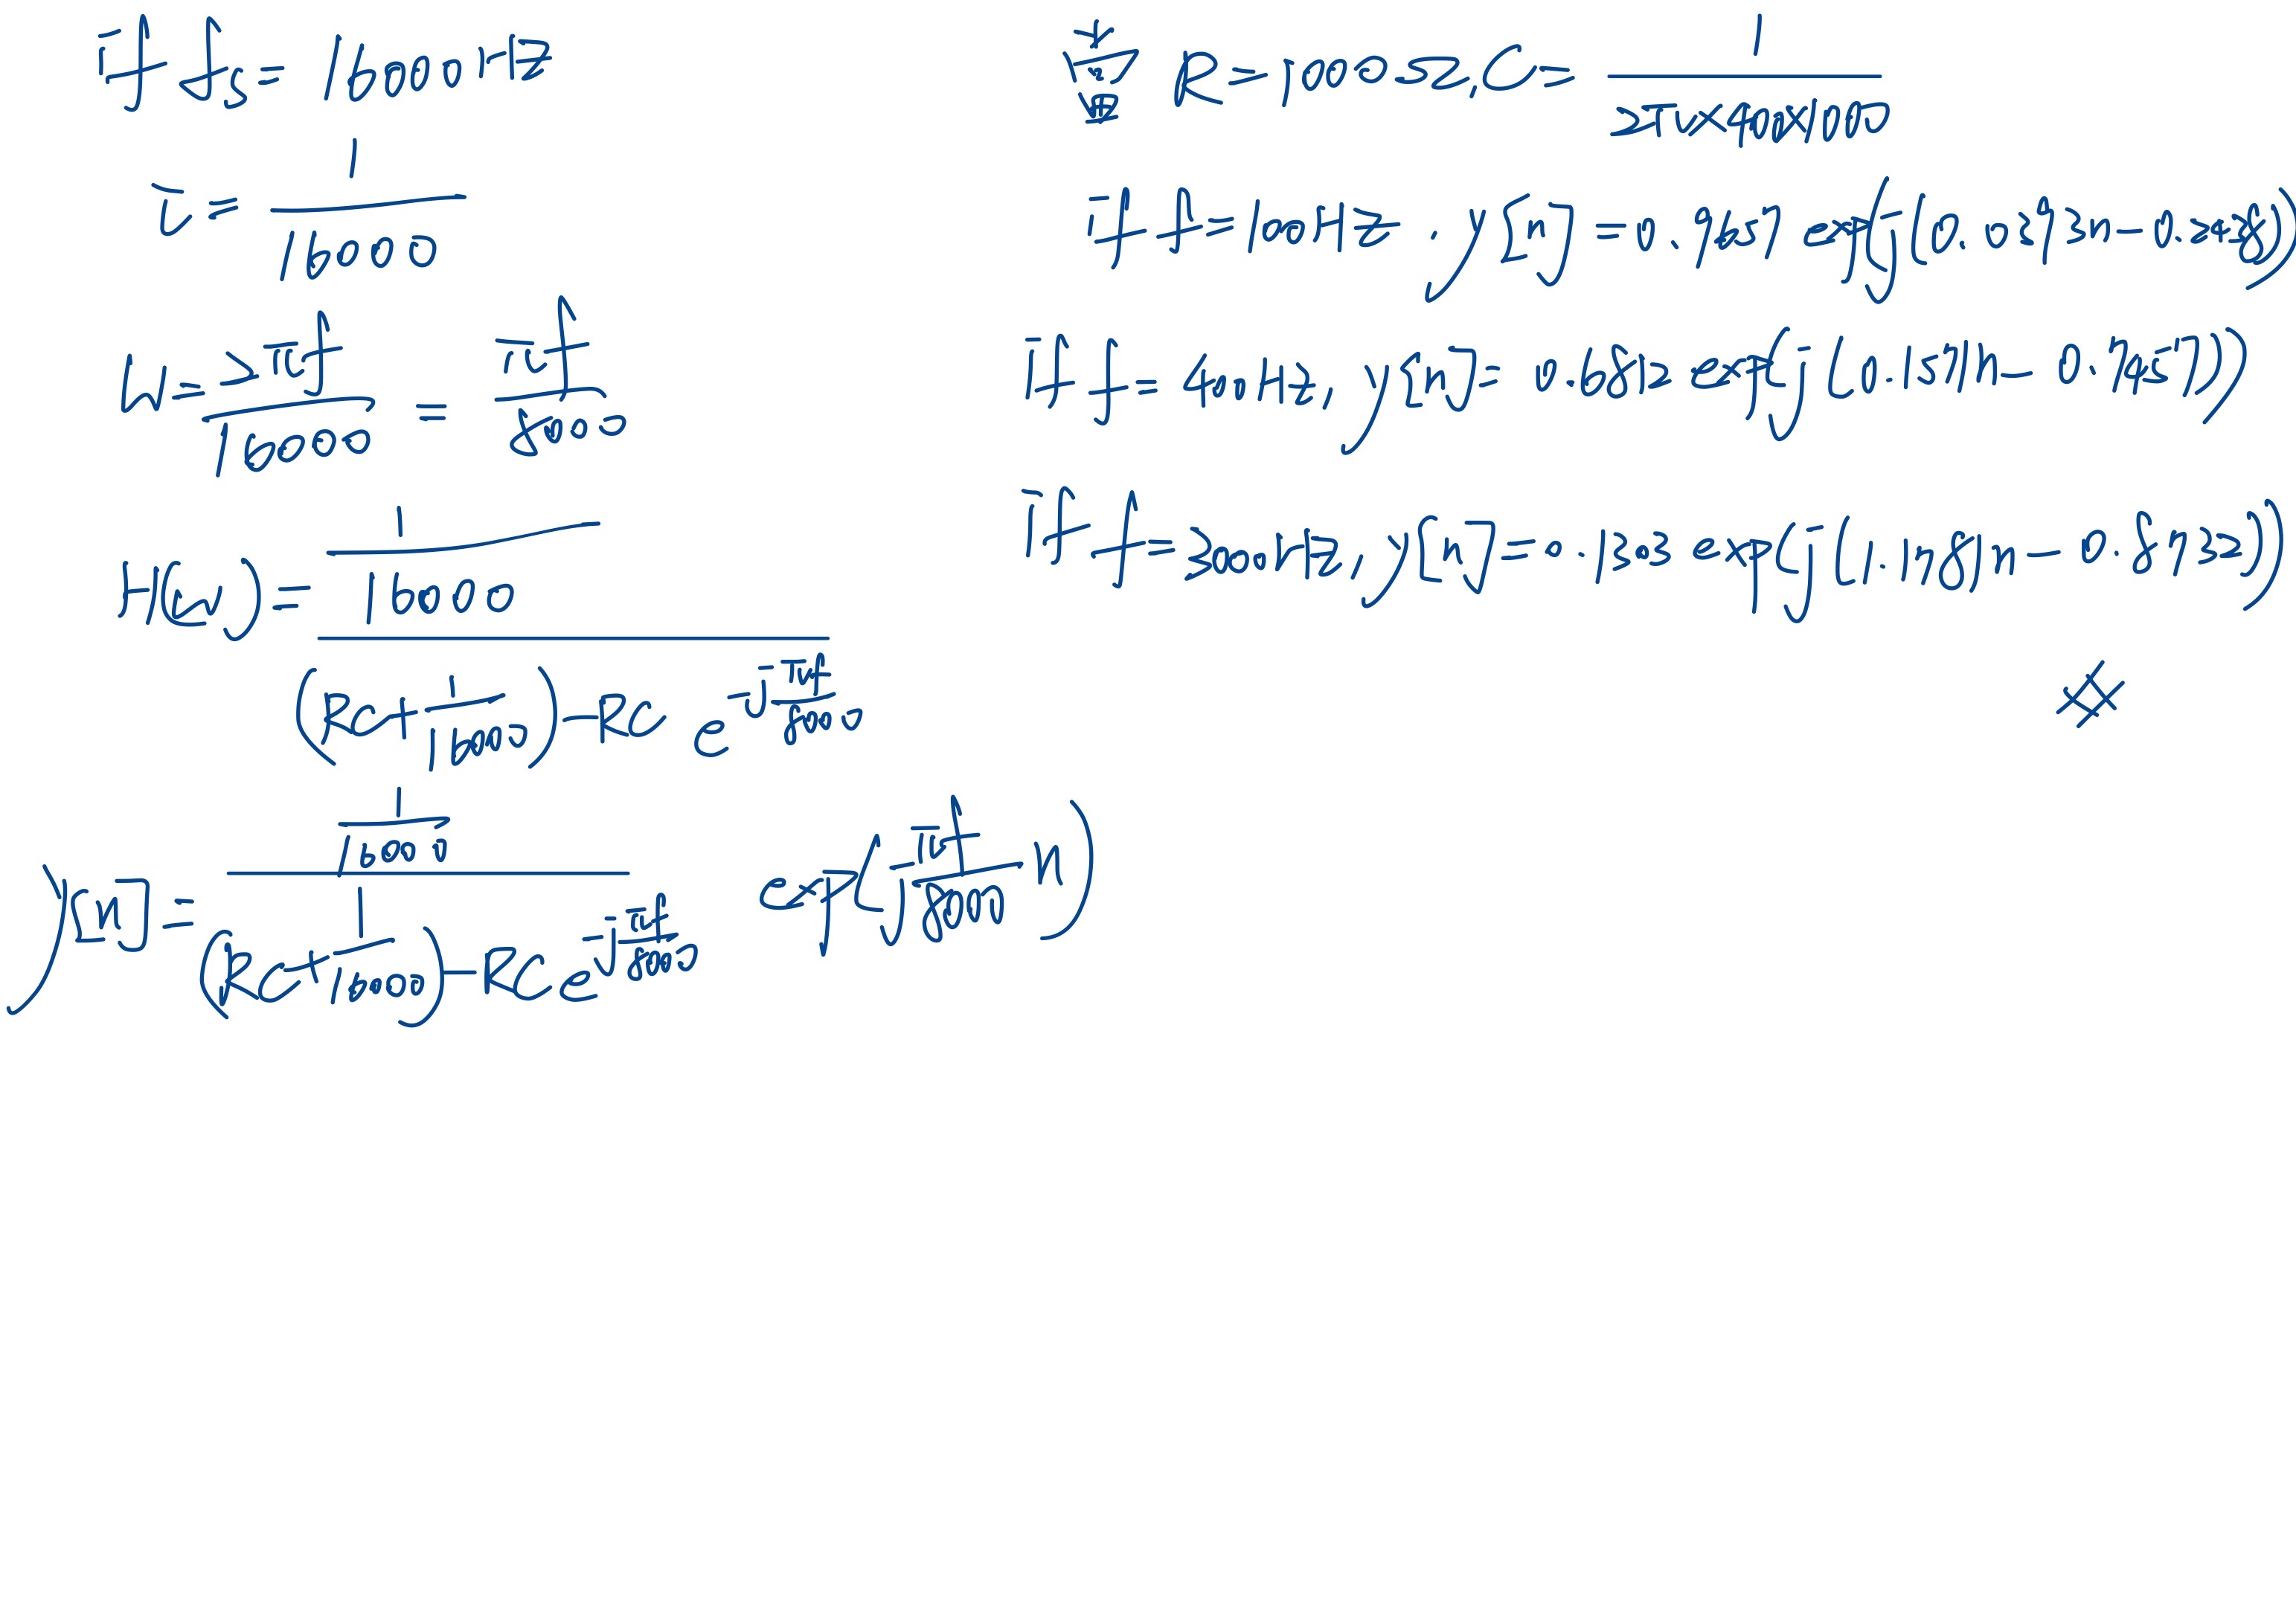 if fs = 16000 Hz
τ = 1/16000
ω = 2πf/16000 = πf/8000
H(ω) = (1/16000) / ((RC + 1/16000) - RC e^(-j πf/8000))
y[n] = (1/16000) / ((RC + 1/16000) - RC e^(-j πf/8000)) exp(j πf/8000 n)
R = 1000 Ω, C = 1/(2π×400×1000)
if f = 100Hz, y[n] = 0.9657 exp(j(0.0393n - 0.248))
if f = 400Hz, y[n] = 0.6812 exp(j(0.1571n - 0.7457))
if f = 3000Hz, y[n] = 0.1303 exp(j(1.1781n - 0.8732))
#